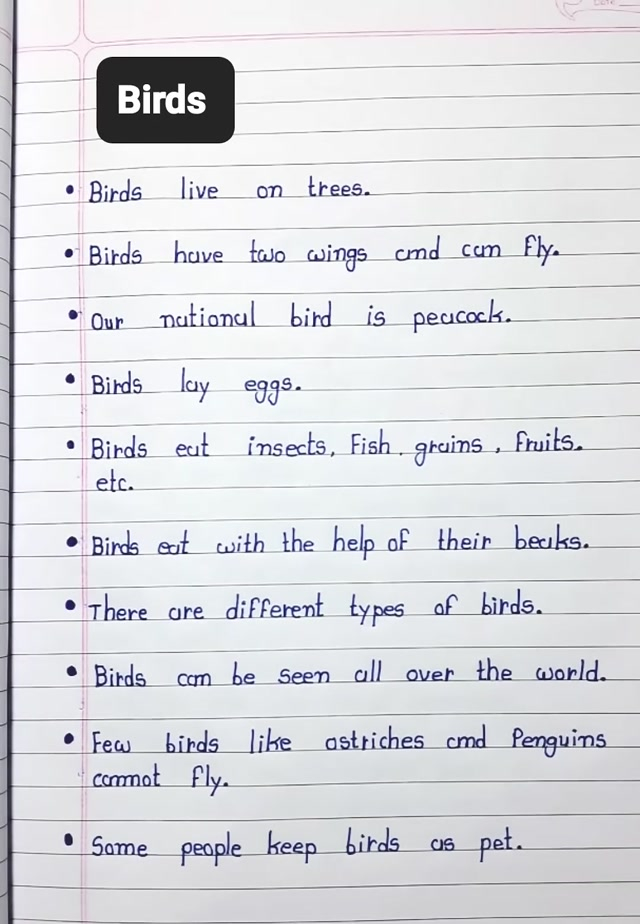 Birds
• Birds live on trees.
• Birds have two wings and can fly.
• Our national bird is peacock.
• Birds lay eggs.
• Birds eat insects, Fish, grains, Fruits.
etc.
• Birds eat with the help of their beaks.
• There are different types of birds.
• Birds can be seen all over the world.
• Few birds like ostriches and Penguins
cannot fly.
• Some people keep birds as pet.